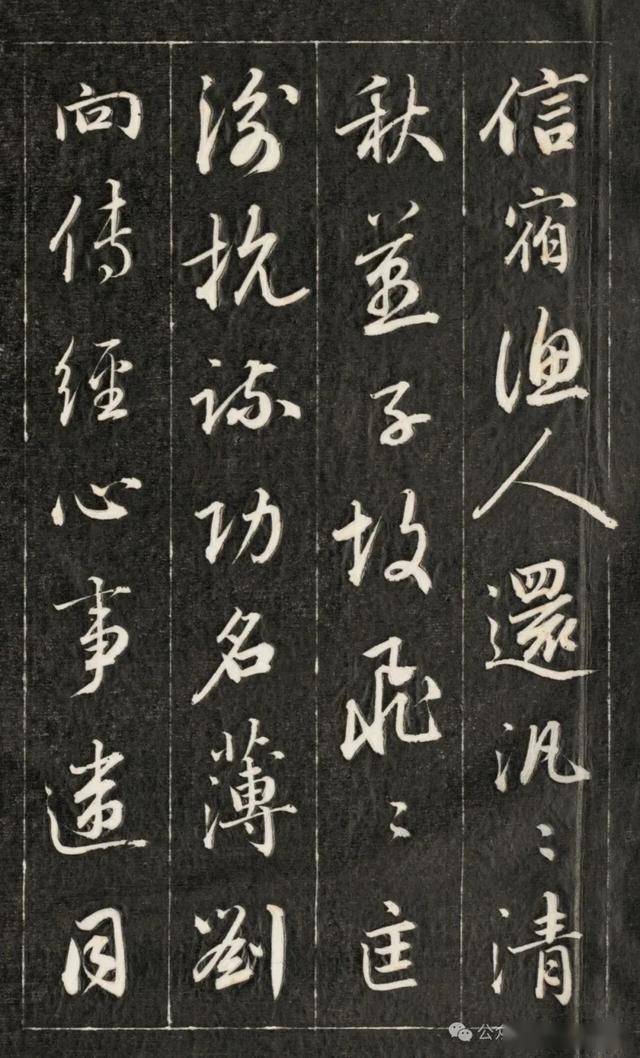 信宿漁人還汎〻清
秋燕子故飛〻匡
衡抗疏功名薄劉
向傳經心事違同
公众